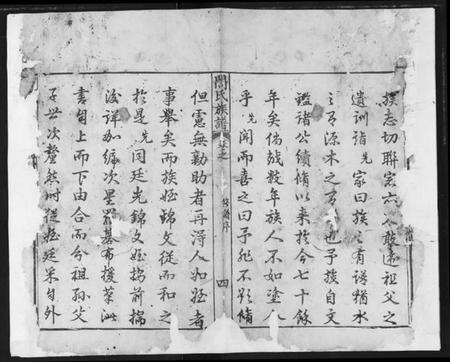 族志切聯宗六人敢遠祖父之
遺訓詣先家曰族之有譜猶水
之有源木之有 也予族自文
謐諸公續脩以來於今七十餘
年矣倘越数年族人不如塗人
乎先聞而喜之曰予非不欲脩
閻氏族譜 卷之 修譜序 四
但憲無勷助者再得人如姪者
事舉矣而族姪錦文從而和之
於是先同廷光錦文姪搜前揣
後詳加編次星羅碁布援筆
書自上而下由合而分祖孫父
子世次釐然時従姪廷采自外